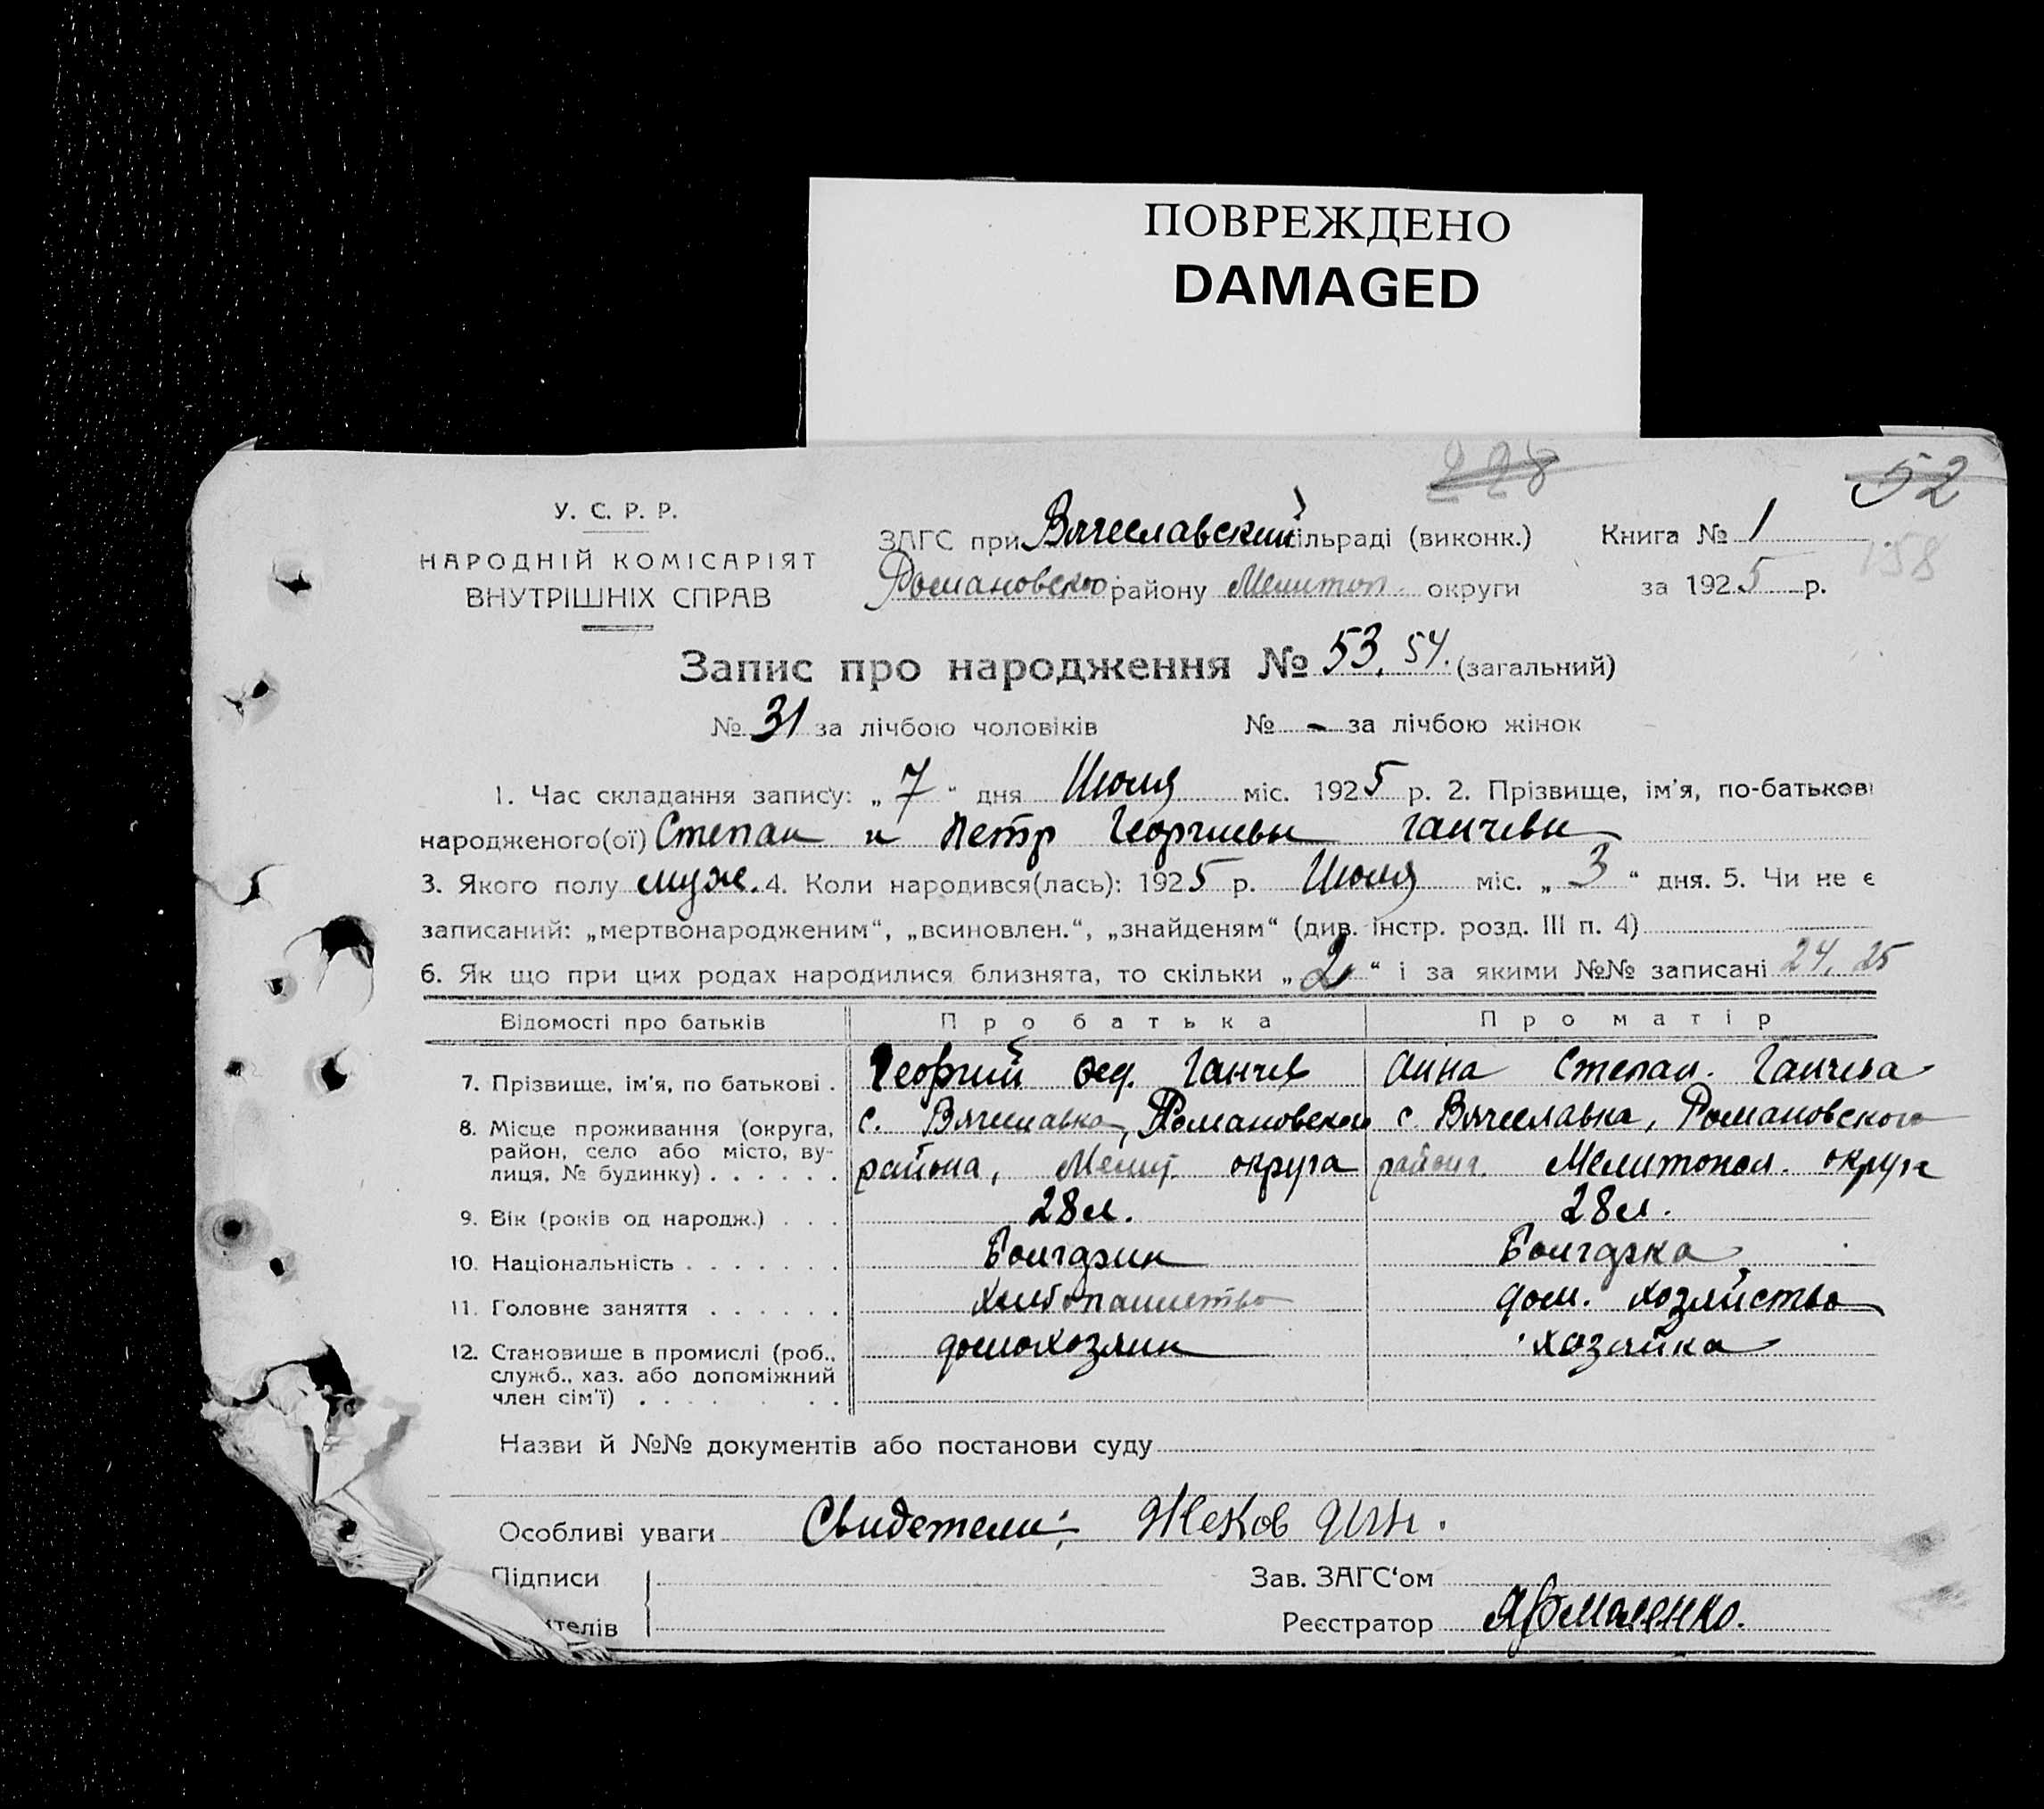 ПОВРЕЖДЕНО
DAMAGED
228
52
158
У. С. Р. Р.
НАРОДНІЙ КОМІСАРІЯТ
ВНУТРІШНІХ СПРАВ
ЗАГС при Вячеславский сільраді (виконк.) Книга № 1
Романовского району Мелитоп. округи за 1925 р.
Запис про народження № 53, 54. (загальний)
№ 31 за лічбою чоловіків № - за лічбою жінок
1. Час складання запису: „7“ дня Июля міс. 1925 р. 2. Прізвище, ім'я, по-батькові
народженого(ої) Степан и Петр Георгиевы Ганчевы
3. Якого полу муж. 4. Коли народився(лась): 1925 р. Июля міс. „3“ дня. 5. Чи не є
записаний: „мертвонародженим“, „всиновлен.“, „знайденям“ (див. інстр. розд. III п. 4)
6. Як що при цих родах народилися близнята, то скільки „2“ і за якими №№ записані 24, 25
Відомості про батьків Про батька Про матір
7. Прізвище, ім'я, по батькові . Георгий Фед. Ганчев Анна Степан. Ганчева
8. Місце проживання (округа, с. Вячеславка, Романовского с. Вячеславка, Романовского
район, село або місто, ву-
лиця, № будинку) . . . . . . района, Мелит. округа района. Мелитопол. округа
9. Вік (років од народж.) . . . 28 л. 28 л.
10. Національність . . . . . . . Болгарин Болгарка
11. Головне заняття . . . . . . Хлебопашество дом. хозяйство
12. Становище в промислі (роб., домохозяин хозяйка
служб., хаз. або допоміжний
член сім'ї) . . . . . . .
Назви й №№ документів або постанови суду
Особливі уваги Свидетели: Жеков
Підписи Зав. ЗАГС‘ом
ителів Реєстратор